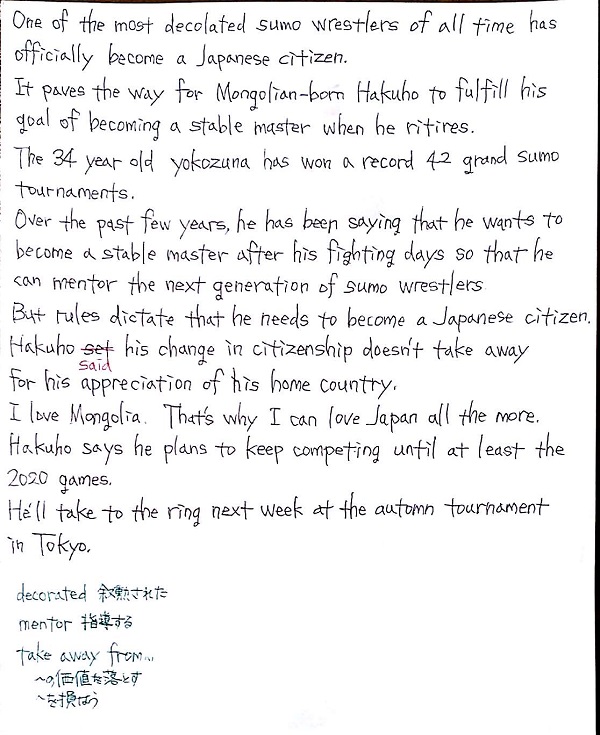 One of the most decolated sumo wrestlers of all time has
officially become a Japanese citizen.
It paves the way for Mongolian-born Hakuho to fulfill his
goal of becoming a stable master when he ritires.
The 34 year old yokozuna has won a record 42 grand sumo
tournaments.
Over the past few years, he has been saying that he wants to
become a stable master after his fighting days so that he
can mentor the next generation of sumo wrestlers
But rules dictate that he needs to become a Japanese citizen.
Hakuho set his change in citizenship doesn't take away
said
for his appreciation of his home country.
I love Mongolia. That's why I can love Japan all the more.
Hakuho says he plans to keep competing until at least the
2020 games.
He'll take to the ring next week at the autumn tournament
in Tokyo.
decorated 叙勲された
mentor 指導する
take away from...
〜の価値を落とす
〜を損なう